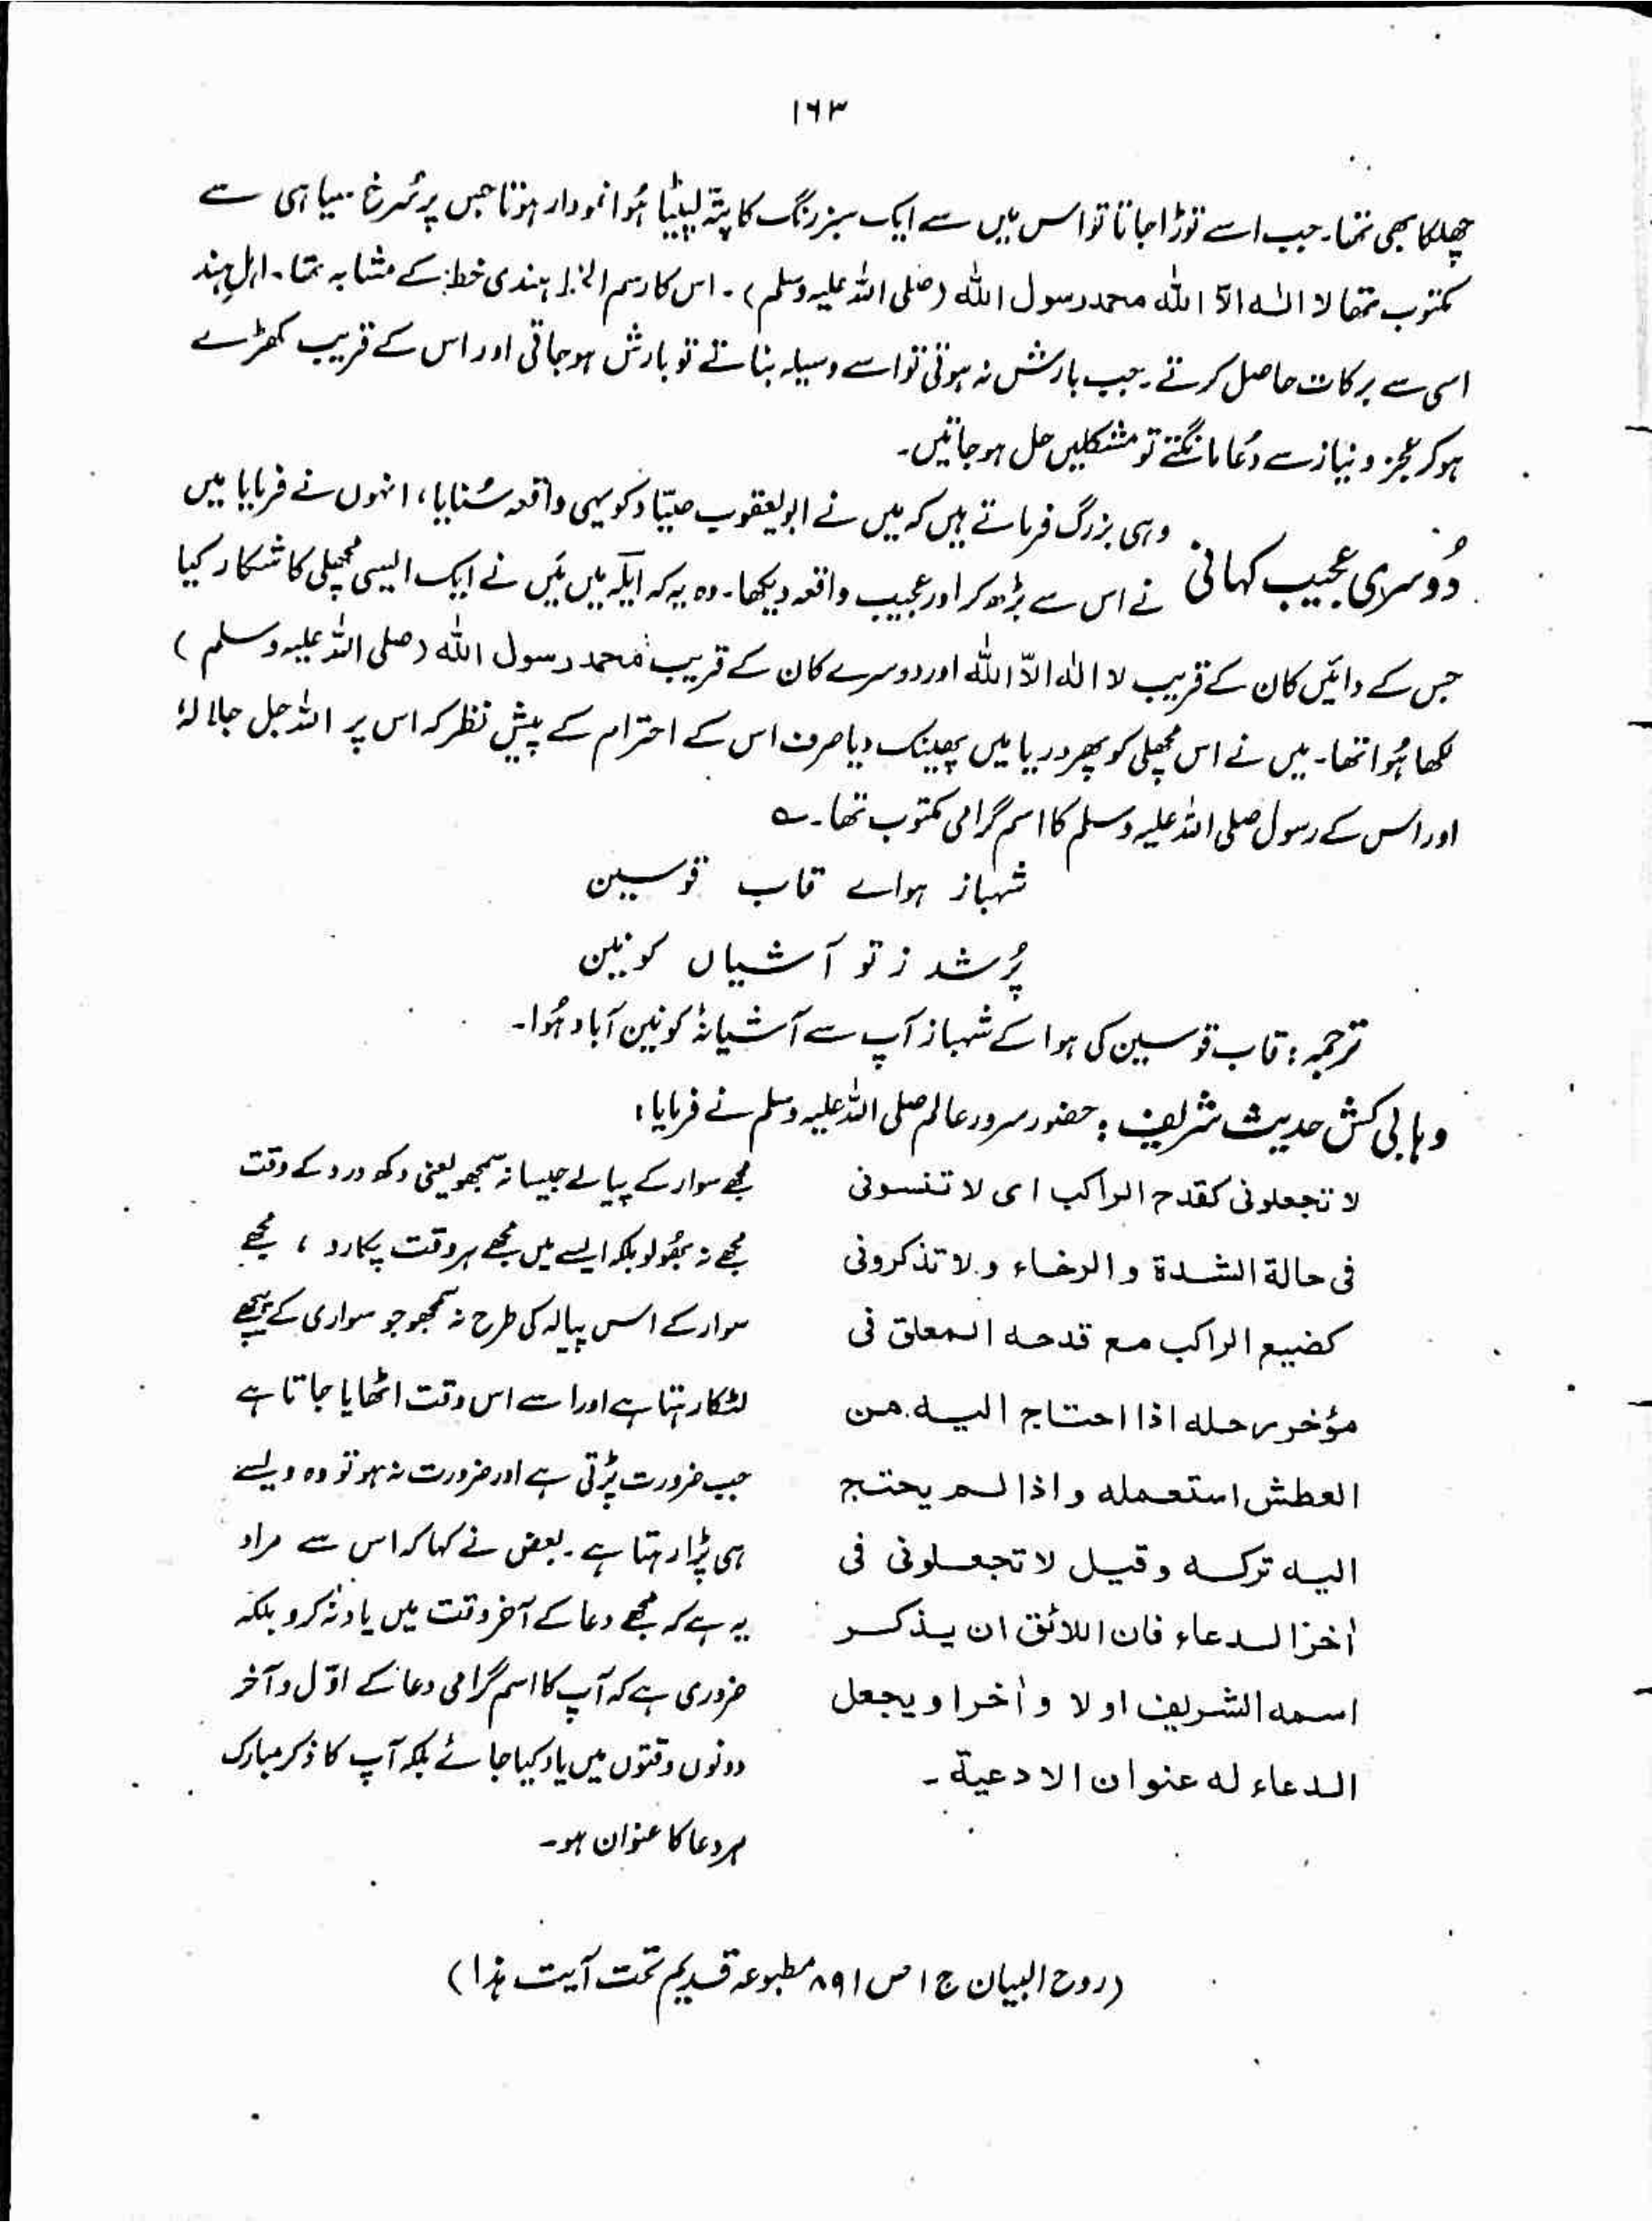 ۱۶۳
چھلکا بھی تھا۔ جب اسے توڑا جاتا تو اس میں سے ایک سبز رنگ کا پتّہ لپٹیا ہُوا نمودار ہوتا جس پر سُرخ سیاہی سے
مکتوب تھا لا الٰہ الّا اللہ محمد رسول اللہ (صلی اللہ علیہ وسلم)۔ اس کا رسم الخط ہندی خط کے مشابہ تھا۔ اہلِ ہند
اسی سے برکات حاصل کرتے۔ جب بارش نہ ہوتی تو اسے وسیلہ بناتے تو بارش ہوجاتی اور اس کے قریب کھڑے
ہو کر عجز و نیاز سے دُعا مانگتے تو مشکلیں حل ہوجاتیں۔
دُوسری عجیب کہانی وہی بزرگ فرماتے ہیں کہ میں نے ابو یعقوب صیّاد کو یہی واقعہ سُنایا، انہوں نے فرمایا میں
نے اس سے بڑھ کر اور عجیب واقعہ دیکھا۔ وہ یہ کہ ایلہ میں مَیں نے ایک ایسی مچھلی کا شکار کیا
جس کے دائیں کان کے قریب لا الٰہ الّا اللہ اور دوسرے کان کے قریب محمد رسول اللہ (صلی اللہ علیہ وسلم)
لکھا ہُوا تھا۔ میں نے اس مچھلی کو پھر دریا میں پھینک دیا صرف اس کے احترام کے پیشِ نظر کہ اس پر اللہ جل جلالہٗ
اور اس کے رسول صلی اللہ علیہ وسلم کا اسم گرامی مکتوب تھا۔ ؎
شہباز ہوائے قاب قوسین
پُر شد ز تو آشیاں کونین
ترجمہ: قاب قوسین کی ہوا کے شہباز آپ سے آشیانۂ کونین آباد ہُوا۔
وہابی کش حدیث شریف: حضور سرور عالم صلی اللہ علیہ وسلم نے فرمایا:
لا تجعلونی کقدح الراکب ای لا تنسونی
فی حالة الشدة و الرخاء و لا تذکرونی
کضیع الراکب مع قدحه المعلق فی
مؤخر رحله اذا احتاج الیه من
العطش استعمله و اذا لم یحتج
الیه ترکه و قیل لا تجعلونی فی
اٰخر الدعاء فان اللائق ان یذکر
اسمه الشریف اولا و اٰخرا و یجعل
الدعاء له عنوان الادعیة۔
مجھے سوار کے پیالے جیسا نہ سمجھو یعنی دکھ درد کے وقت
مجھے نہ بھُولو بلکہ ایسے میں مجھے ہر وقت پکارو، مجھے
سوار کے اس پیالہ کی طرح نہ سمجھو جو سواری کے پیچھے
لٹکا رہتا ہے اور اسے اس وقت اٹھایا جاتا ہے
جب ضرورت پڑتی ہے اور ضرورت نہ ہو تو وہ ویسے
ہی پڑا رہتا ہے۔ بعض نے کہا کہ اس سے مراد
یہ ہے کہ مجھے دعا کے آخر وقت میں یاد نہ کرو بلکہ
ضروری ہے کہ آپ کا اسم گرامی دعا کے اوّل و آخر
دونوں وقتوں میں یاد کیا جائے بلکہ آپ کا ذکر مبارک
ہر دعا کا عنوان ہو۔
(روح البیان ج ۱ ص ۸۹۱ مطبوعہ قدیم تحت آیت ہذا)